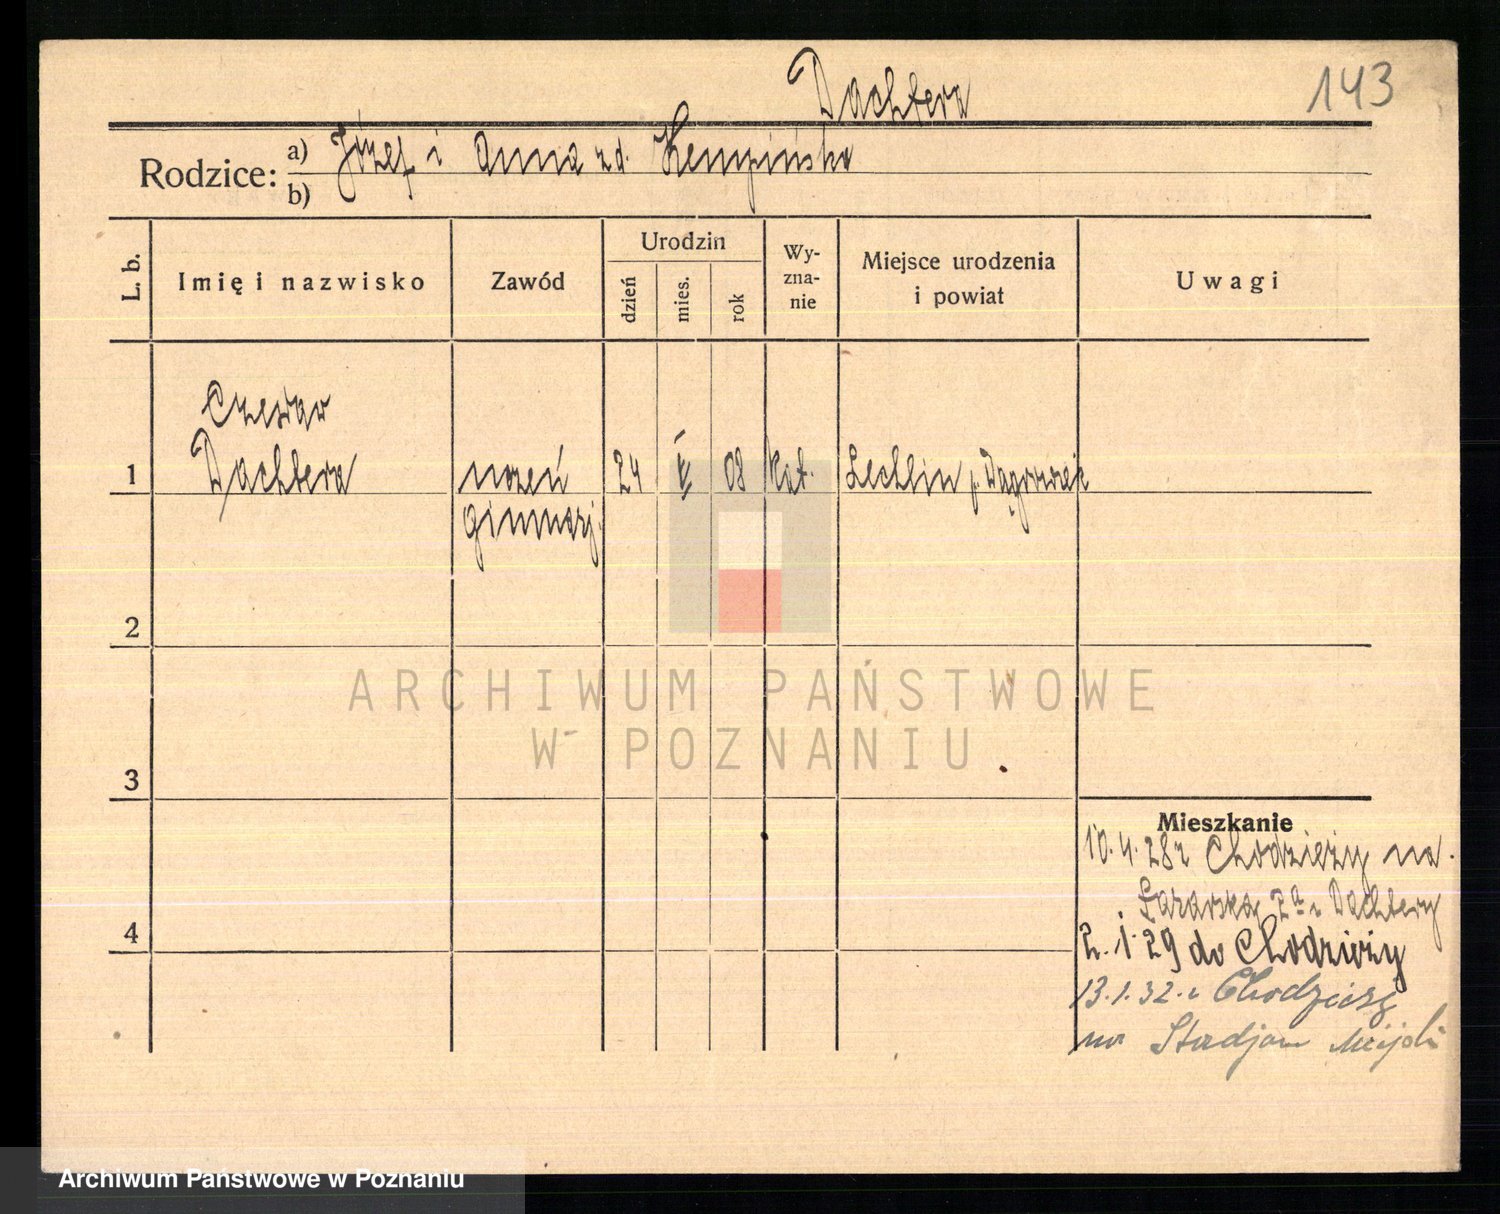 143
Dachtera
Rodzice: a) Józef i Anna zd. Kempińska
b)
L. b. Imię i nazwisko Zawód Urodzin dzień mies. rok Wy-zna-nie Miejsce urodzenia i powiat Uwagi
Czesław
1 Dachtera uczeń 24 V 08 kat. Lechlin p. Wągrowiek
gimnazj.
2
ARCHIWUM PAŃSTWOWE
W POZNANIU
3
Mieszkanie
10.4.28 z Chodzieży na
2a Dachtery
4
2.1.29 do Chodzieży
13.1.32. z Chodzież
na Stadjon Miejski
Archiwum Państwowe w Poznaniu